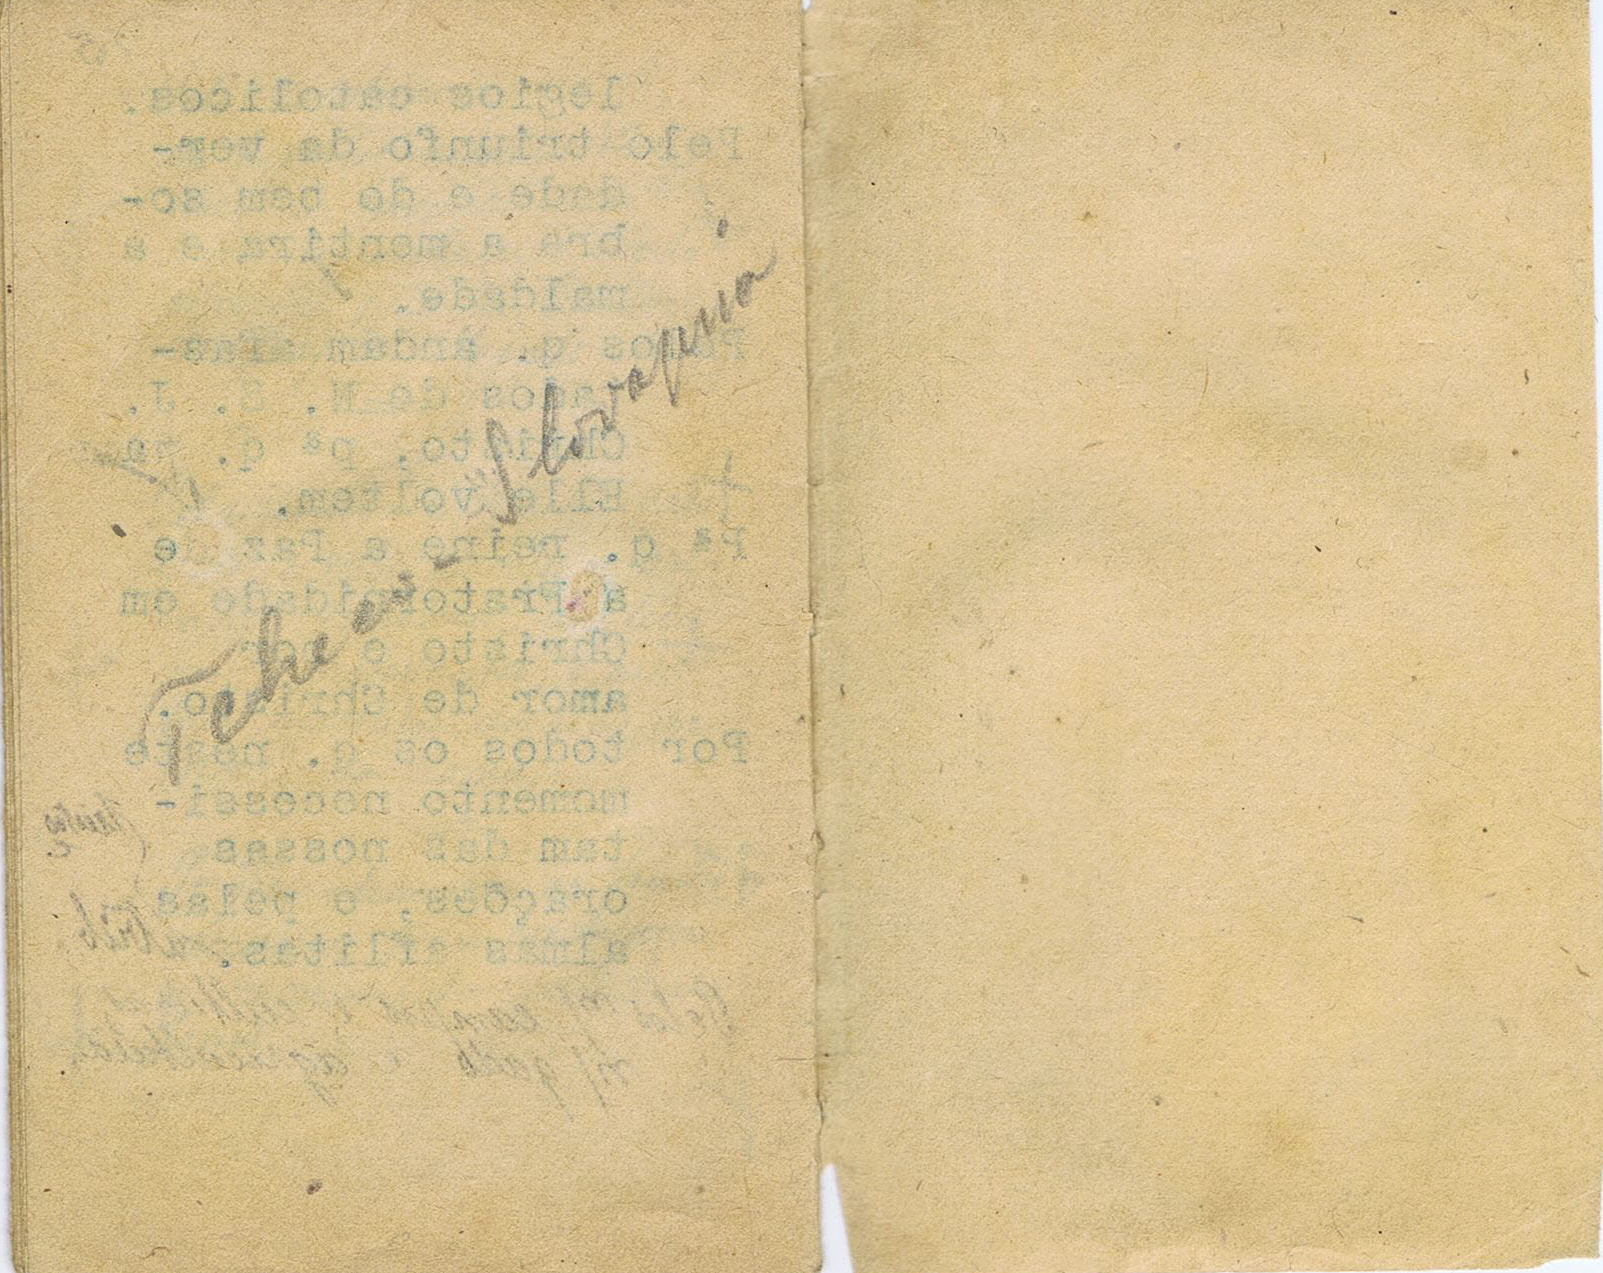 legios catolicos.
Pelo triunfo da ver-
dade e do bem so-
bre a mentira e a
maldade.
Pelos q. andam afas-
tados de N. S. J.
Christo, pª q. pª
Elle voltem.
Pª q. reine a Paz e
a Fraternidade em
Christo e por
amor de Christo.
Por todos os q. neste
momento necessi-
tam das nossas
orações, e pelas
almas aflitas.
gado e agricultura
Tcheco-Slovaquia